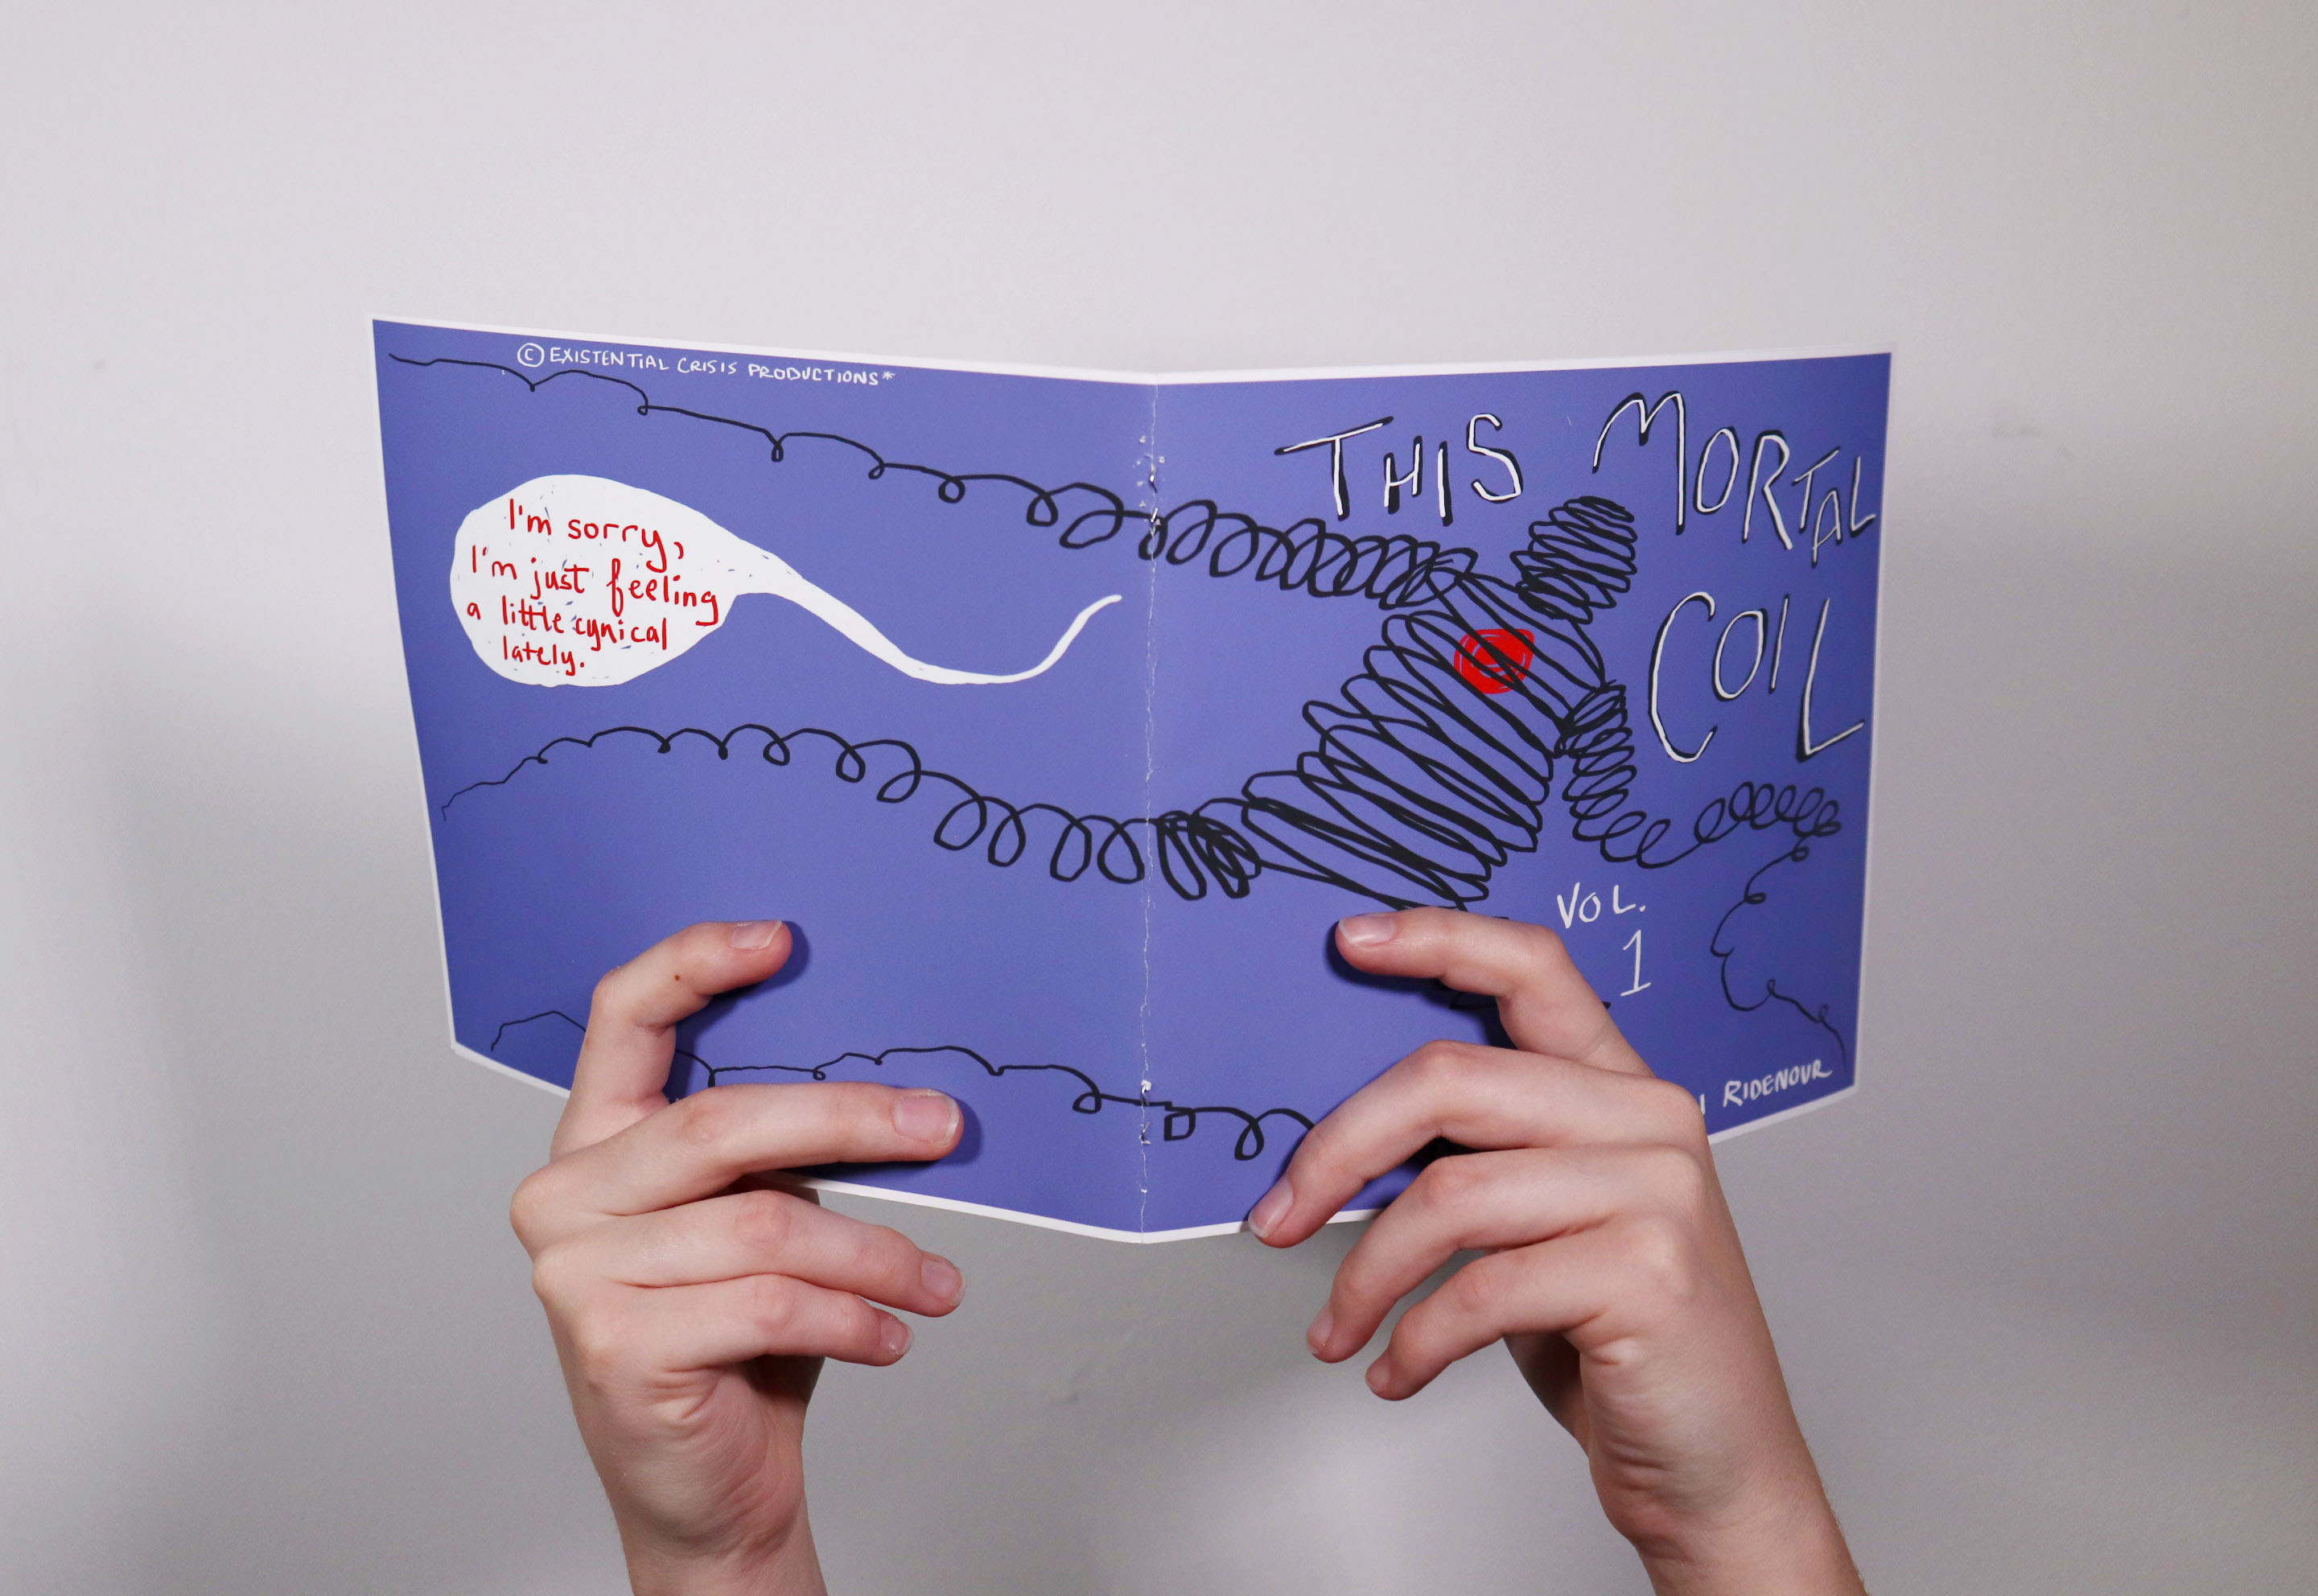 © EXISTENTIAL CRISIS PRODUCTIONS*
I'm sorry,
I'm just feeling
a little cynical
lately.
THIS MORTAL
COIL
VOL.
1
RIDENOUR